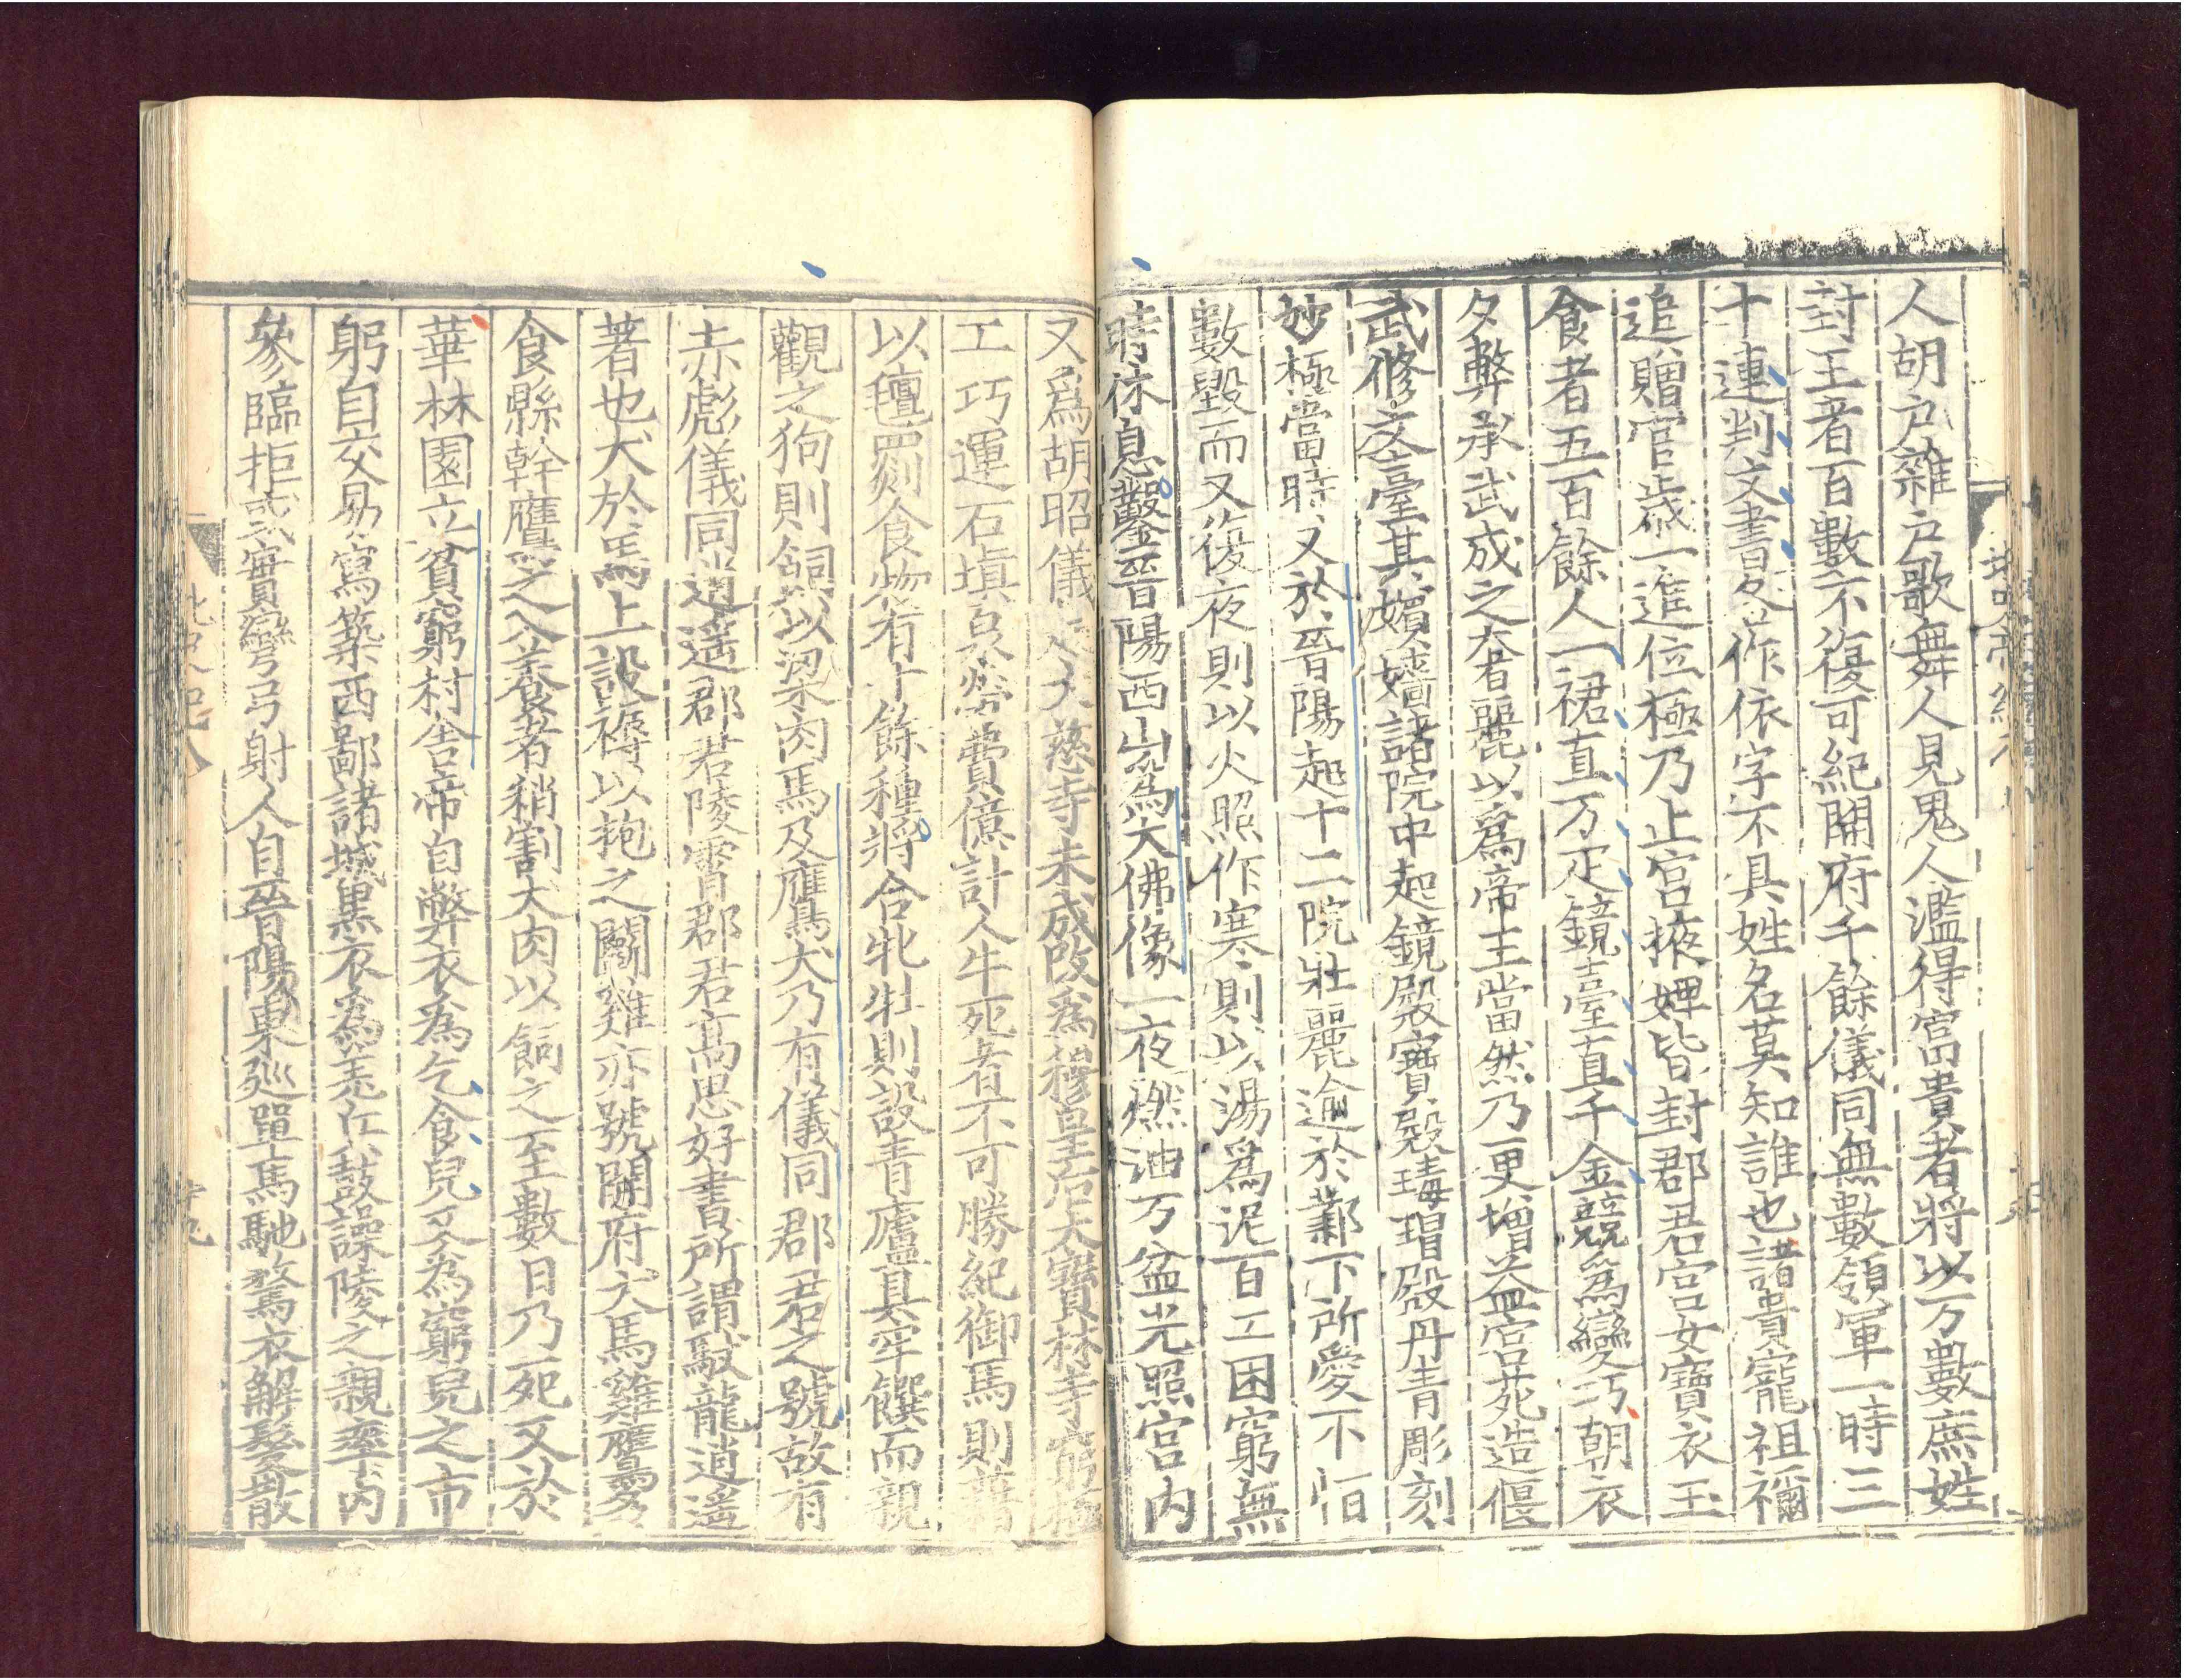 人胡户雜户歌舞人見鬼人濫得富貴者將以万數庶姓
封王者百數不復可紀開府千餘儀同無數領軍一時三
十連判文書各作依字不具姓名莫知誰也諸貴寵祖禰
追贈官歲一進位極乃止宮掖婢皆封郡君宮女寶衣玉
食者五百餘人一裙直万疋鏡臺直千金競為變巧朝衣
夕弊承武成之奢麗以爲帝王當然乃更增益宮苑造偃
武修文臺其嬪嬙諸院中起鏡殿寶殿瑇瑁殿丹青彫刻
妙極當時又於晉陽起十二院壯麗逾於鄴下所愛不恒
數毀而又復夜則以火照作寒則以湯爲泥百工困窮無
時休息鑿晉陽西山爲大佛像一夜燃油万盆光照宮内
又爲胡昭儀起大慈寺未成改爲穆皇后大寶林寺窮極
工巧運石填泉勞費億計人牛死者不可勝紀御馬則藉
以氊罽食物有十餘種將合牝牡則設青廬具牢饌而親
觀之狗則飼以梁肉馬及鷹犬乃有儀同郡君之號故有
赤彪儀同逍遥郡君陵霄郡君高思好書所謂駮龍逍遥
著也犬於馬上設褥以抱之鬬雞亦號開府犬馬雞鷹多
食縣幹鷹之入養者稍割犬肉以飼之至數日乃死又於
華林園立貧窮村舍帝自弊衣為乞食兒又為窮兒之市
躬自交易寫築西鄙諸城黑衣為羌兵鼓譟陵之親率内
參臨拒或實彎弓射人自晉陽東巡單馬馳騖衣解髮散